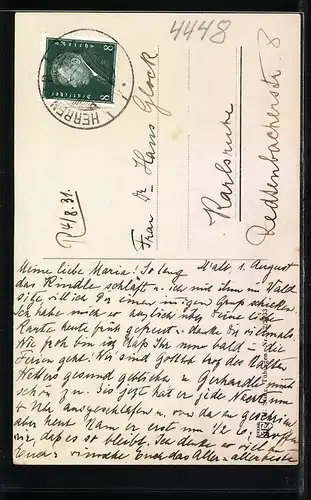 4448
8 Deutsches Reich 8
HERREN
R 4/8.31.
Frau Dr Hans Glock
Karlsruhe
Redtenbacherstr. 8
Meine liebe Maria! So lang
1. August
das Kindle schläft u. ich mit ihm im Wald
sitze, will ich Dir einen innigen Gruß schicken.
Ich habe mich so herzlich über Deine liebe
Karte heute früh gefreut u. danke Dir vielmals.
Wie froh bin ich daß Ihr nun bald die
Ferien geht! Wir sind Gottlob trotz des kalten
Wetters gesund geblieben u. Gerhardle
schön zu. Bis jetzt hat er jede Nacht um
Uhr ausgeschlafen u. dann geschrien
aber heut kam er erst um 1/2
wir, daß es so bleibt. Ich denke so viel an
Euch u. wünsche Euch das Aller-allerbeste